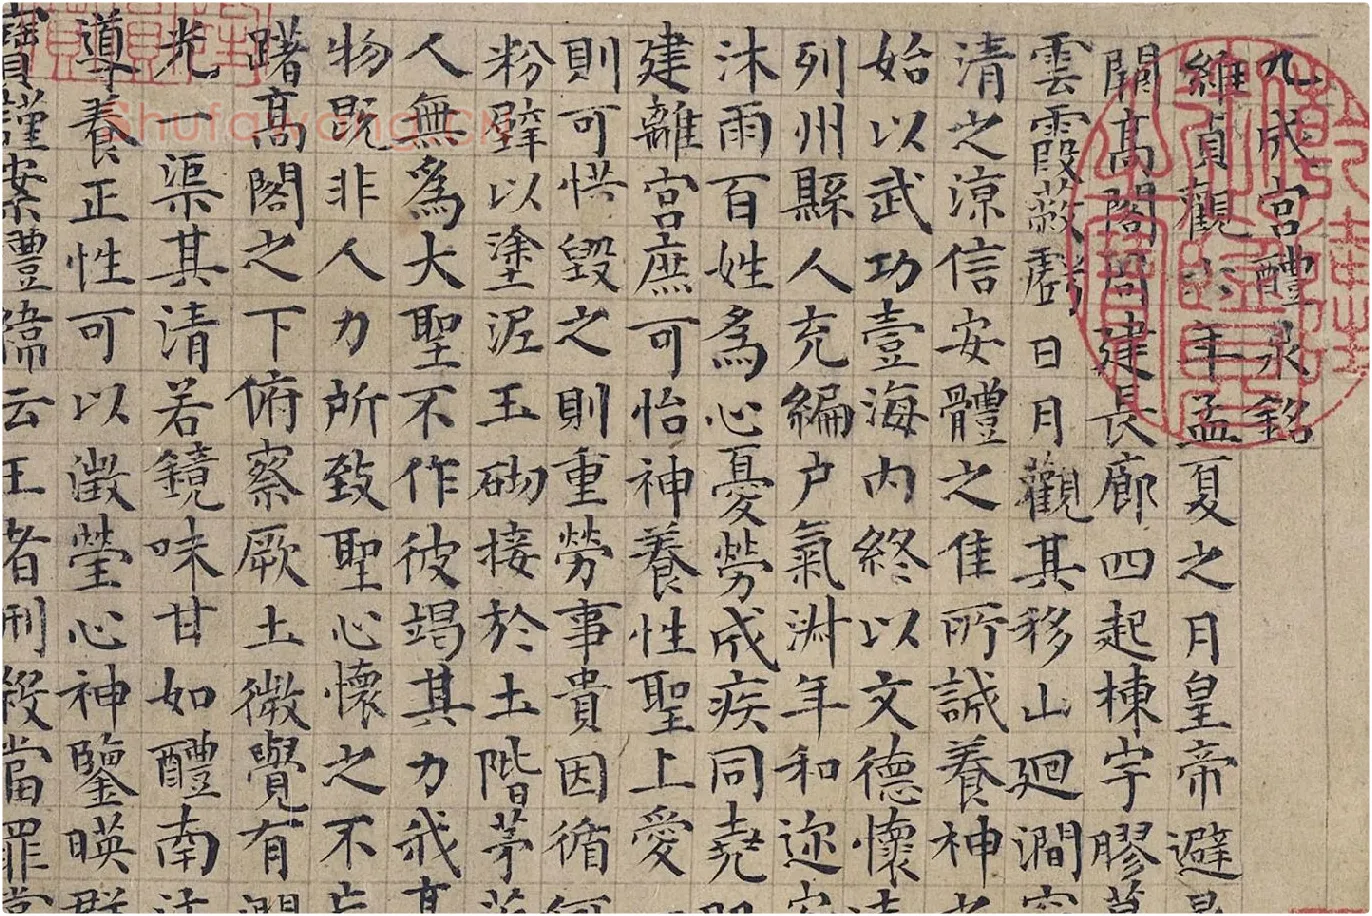 九成宮醴泉銘
維貞觀六年孟夏之月皇帝避
闕高閣周建長廊四起棟宇膠葛
雲霞蔽虧日月觀其移山迴澗
清之涼信安體之佳所誠養神
始以武功壹海内終以文德懷
列州縣人充編户氣淑年和迩安
沐雨百姓為心憂勞成疾同堯
建離宮庶可怡神養性聖上愛
則可惜毀之則重勞事貴因循何
粉壁以塗泥玉砌接於土階茅茨
人無為大聖不作彼竭其力我享
物既非人力所致聖心懷之不忘
躇高閣之下俯察厥土微覺有潤
光一渠其清若鏡味甘如醴南注
導養正性可以澂瑩心神鑒暎群
實謹案禮緯云王者刑殺當罪賞
Shufawang.CN